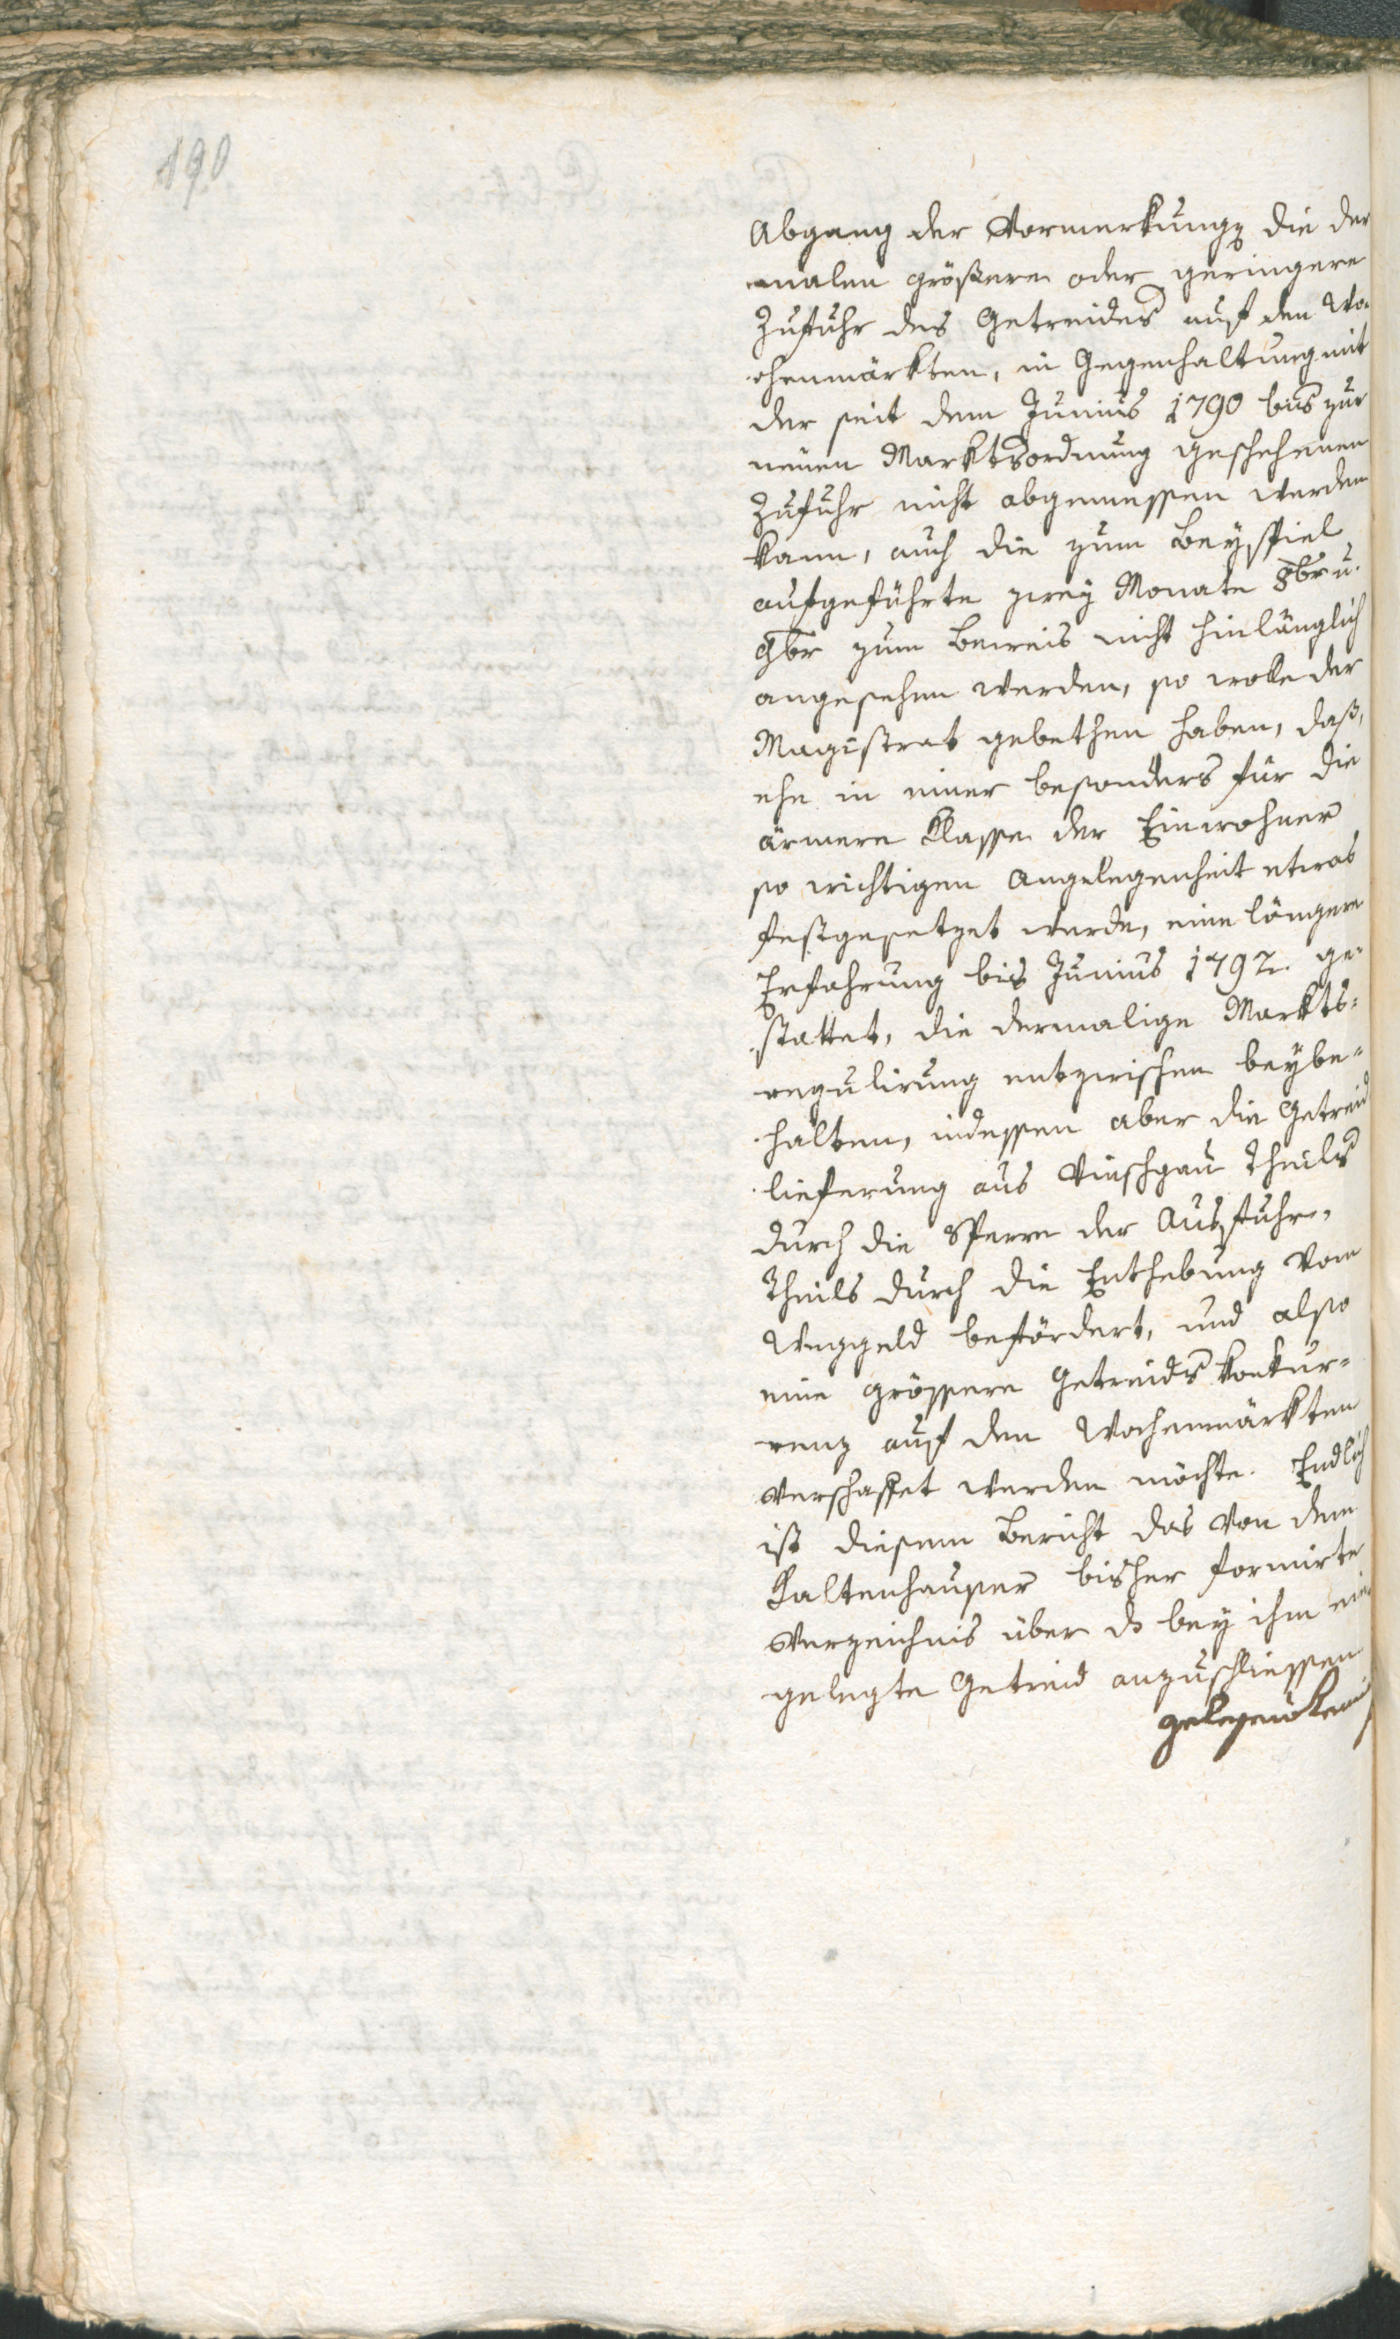 190
Abgang der Vormerkung, die der
malen größere oder geringere
Zufuhr des Getreides auf den Wo¬
chenmärkten, in Gegenhaltung mit
der seit dem Junius 1790 bis zur
neuen Marktsordnung geschehenen
Zufuhr nicht abgemessen werden
kann, auch die zum Beyspiel
aufgeführte zwey Monate 8br u.
9br zum Beweis nicht hinlänglich
angesehen werden, so wolle der
Magistrat gebethen haben, daß,
ehe in einer besonders für die
ärmere Klasse der Einwohner
so wichtigen Angelegenheit etwas
festgesetzet werde, eine längere
Erfahrung bis Junius 1792. ge¬
stattet, die dermalige Markts¬
regulirung entzwischen beybe¬
halten, indessen aber die Getreid
lieferung aus Vinschgau theils
durch die Sperre der Ausfuhr,
theils durch die Enthebung vom
Weggeld befördert, und also
eine grössere Getreids konkur¬
renz auf den Wochenmärkten
verschaffet werden möchte. Endlich
ist diesem Bericht das von dem
Kaltenhauser bisher formirte
Verzeichnis über d bey ihm ein
gelegte Getreid anzuschliessen